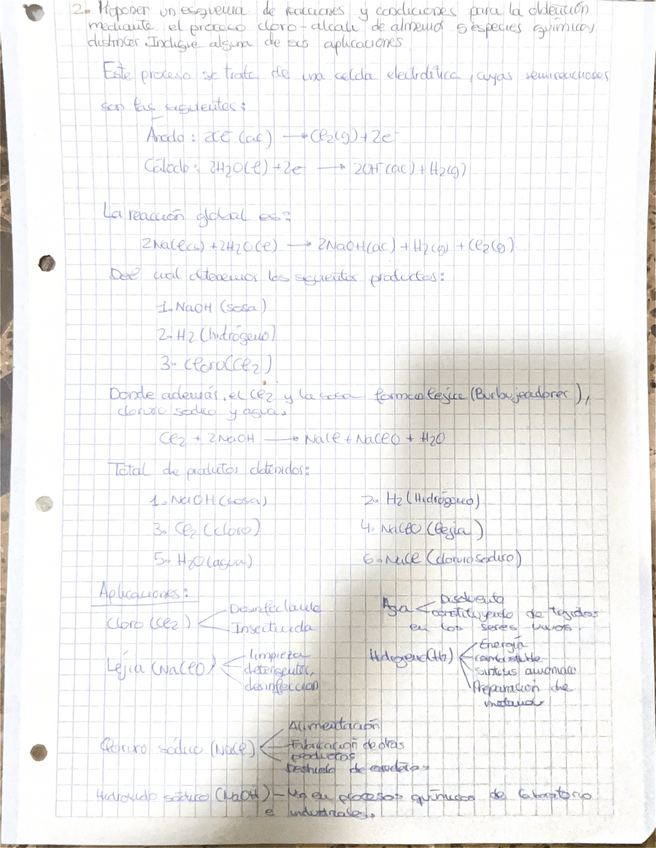 2. Proponer un esquema de reacciones y condiciones para la obtención
mediante el proceso cloro-alcali de al menos 5 especies químicas
distintas. Indique alguna de sus aplicaciones
Este proceso se trata de una celda electrolítica, cuyas semireacciones
son las siguientes:
Ánodo: 2Cl⁻(ac) → Cl2(g) + 2e⁻
Cátodo: 2H2O(l) + 2e⁻ → 2OH⁻(ac) + H2(g)
La reacción global es:
2NaCl(s) + 2H2O(l) → 2NaOH(ac) + H2(g) + Cl2(g)
Del cual obtenemos los siguientes productos:
1. NaOH (sosa)
2. H2 (hidrógeno)
3. Cloro (Cl2)
Donde además, el Cl2 y la sosa forman lejía (Burbujeadores),
cloruro sódico y agua.
Cl2 + 2NaOH → NaCl + NaClO + H2O
Total de productos obtenidos:
1. NaOH (sosa) 2. H2 (Hidrógeno)
3. Cl2 (cloro) 4. NaClO (lejía)
5. H2O (agua) 6. NaCl (cloruro sódico)
Aplicaciones:
Cloro (Cl2) Desinfectante
Insecticida
Agua Disolvente
constituyendo de tejidos
en los seres vivos.
Lejía (NaClO) limpieza
detergentes,
desinfección
Hidrógeno (H2) Energía
combustible
Síntesis amoniaco
Preparación de
metanol
Cloruro sódico (NaCl) Alimentación
Fabricación de otros
productos
Deshielo de carreteras
Hidróxido sódico (NaOH) - Uso en procesos químicos de laboratorio
e industriales.